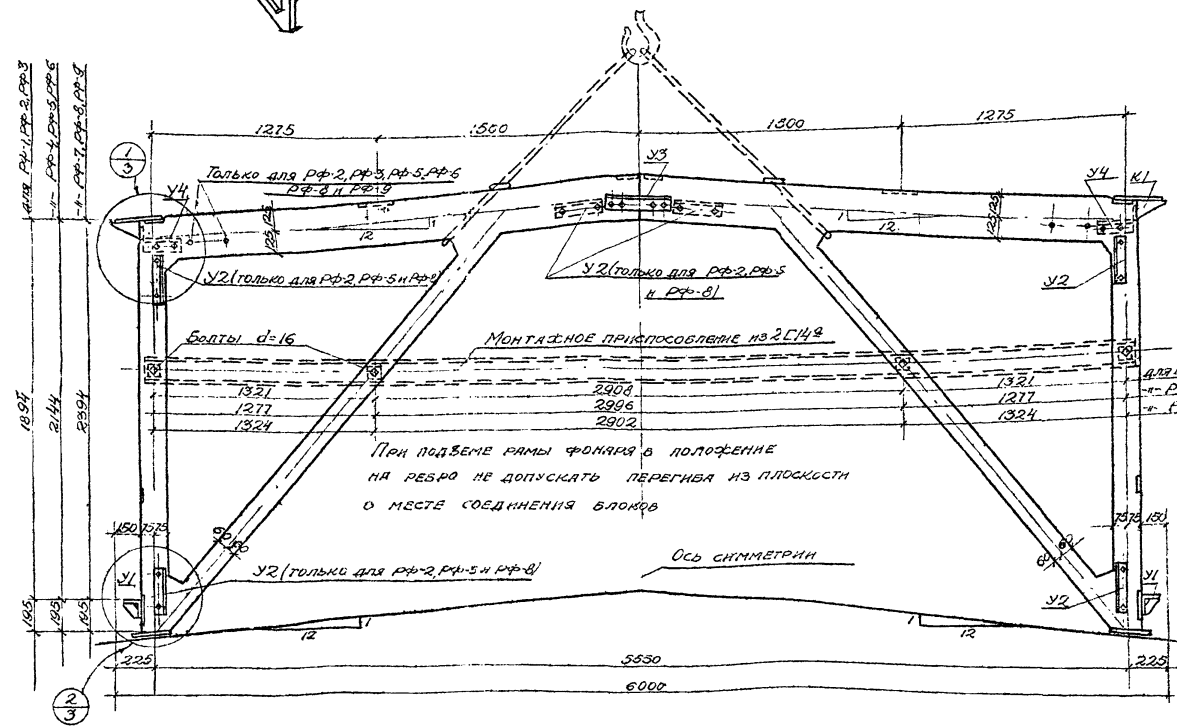 для РФ-1, РФ-2, РФ-3
-"- РФ-4, РФ-5, РФ-6
-"- РФ-7, РФ-8, РФ-9
1275
1500
1275
1
3
Только для РФ-2, РФ-3, РФ-5, РФ-6
РФ-8 и РФ-9
У4
У3
У4
К1
125 125
12
1
1
12
125 125
У2 (только для РФ-2, РФ-5 и РФ-8)
У2 (только для РФ-2, РФ-5
и РФ-8)
У2
Болты d=16
Монтажное приспособление из 2[14а
1321
2908
1321
для
1277
2996
1277
-"- Р
1324
2902
1324
-"-
1894
2144
2394
При подъеме рамы фонаря в положение
на ребро не допускать перегиба из плоскости
в месте соединения блоков
150
75 75
60 60
60 60
75 75
150
У1
У2 (только для РФ-2, РФ-5 и РФ-8)
Ось симметрии
У2
У1
195
195
195
12
1
1
12
225
5550
225
6000
2
3